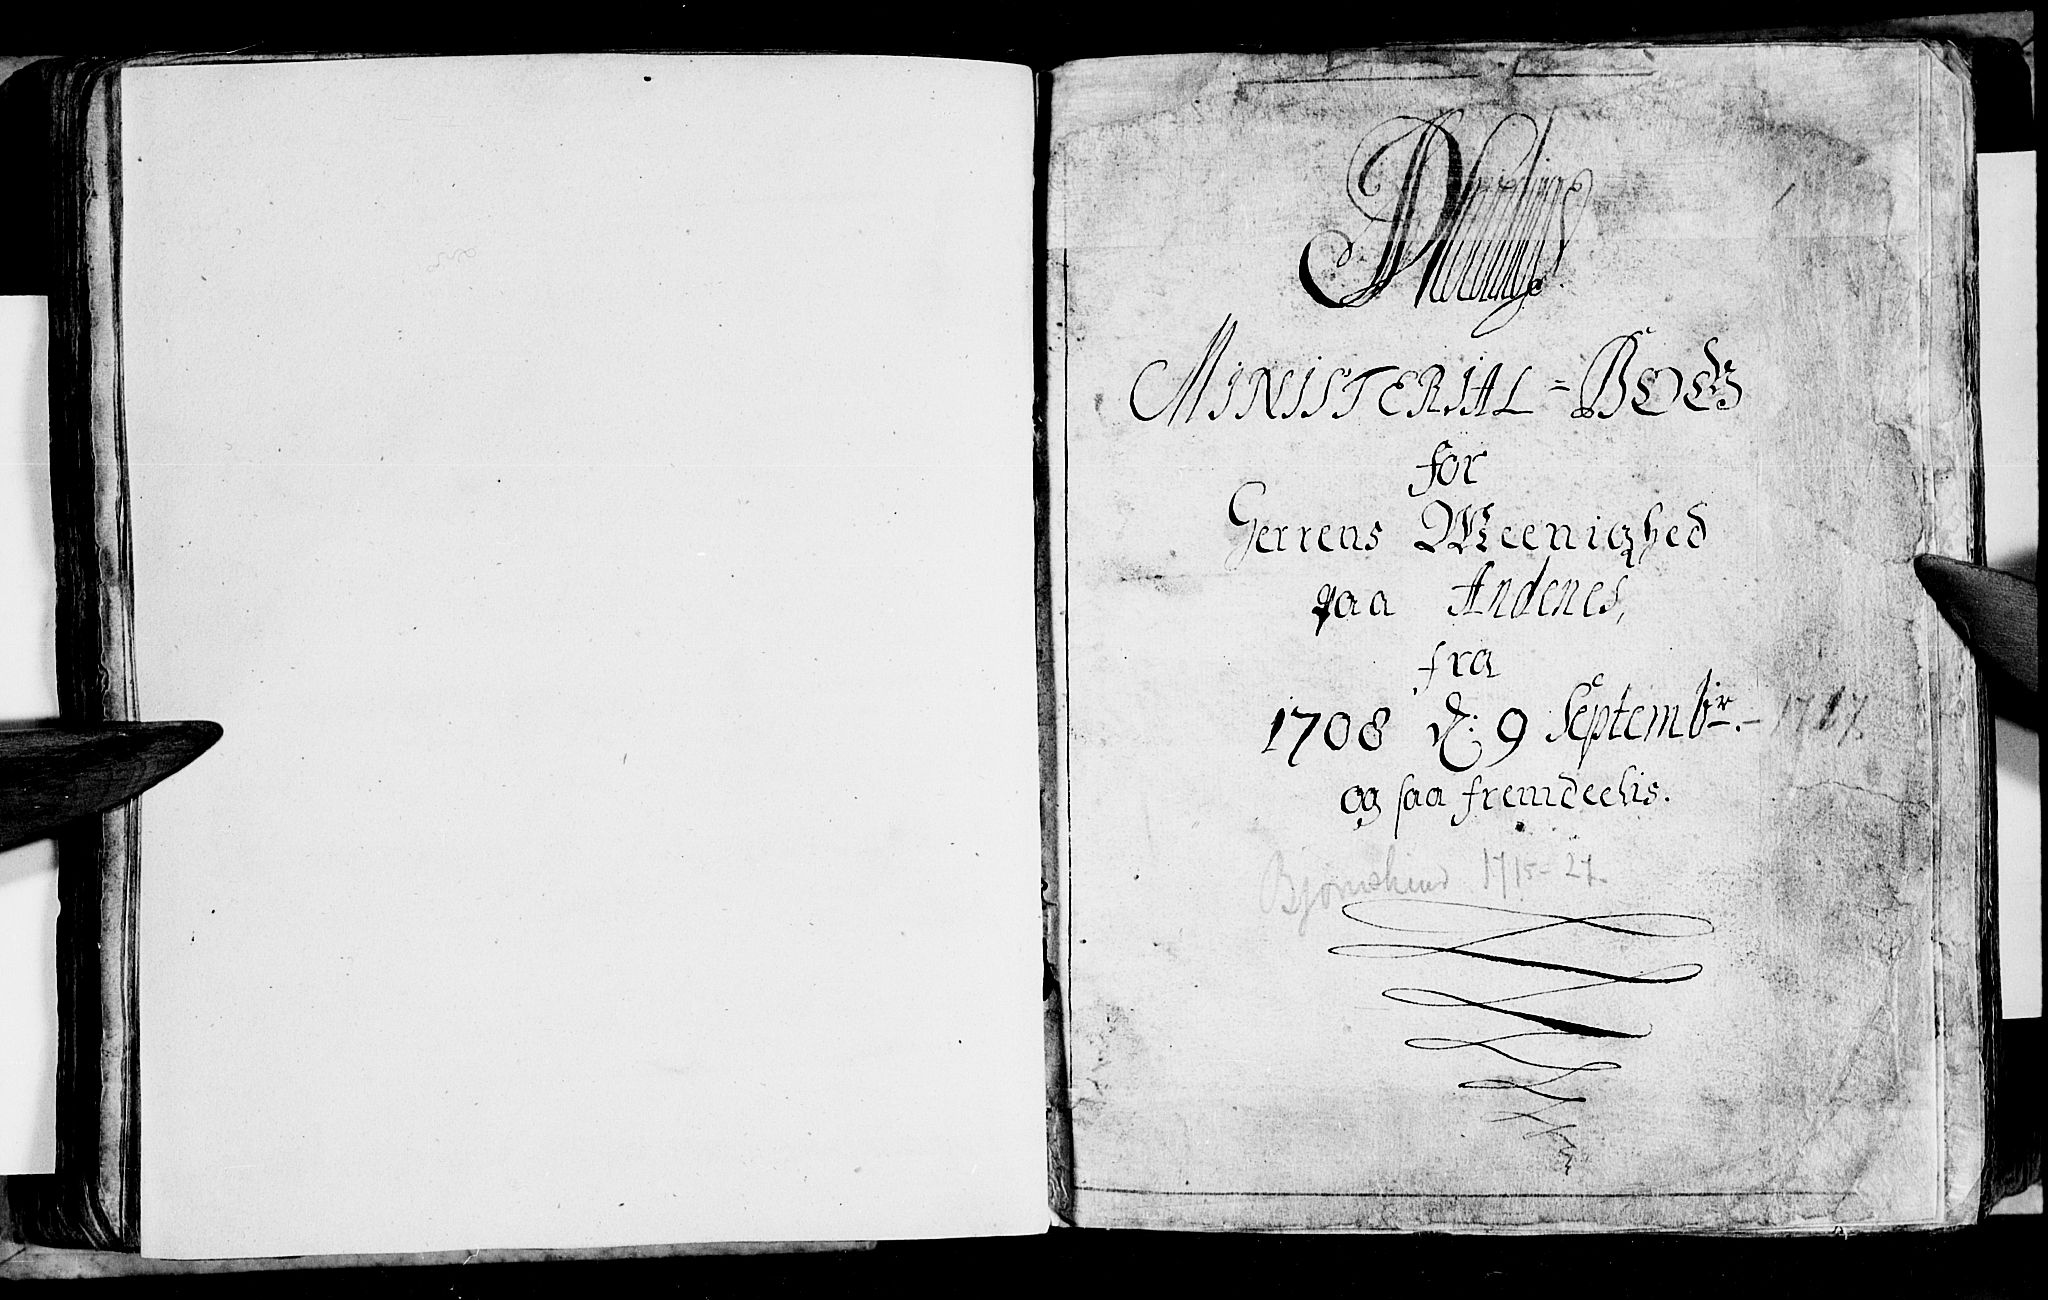 MINISTERIAL = BOCK
for
Herrens Meenighed
paa Andenes,
fra
1708 d: 9 Septembr. – 1717.
og saa fremdeelis.
Bjørnskind 1715-27.